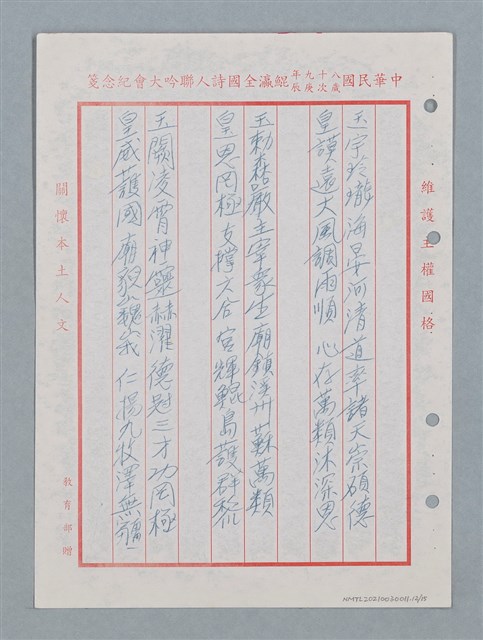 中華民國八十九年歲次庚辰鯤瀛全國詩人聯吟大會紀念箋
維護主權國格
玉宇玲瓏海晏河清道率諸天崇碩德
皇謨遠大風調雨順 心存萬類沐深恩
玉勅森嚴主宰眾生廟鎮溪州蘇萬類
皇恩罔極支撐六合宮輝鯤島護群黎
玉闕凌霄神靈赫濯德冠三才功罔極
皇威護國廟貌巍峨 仁揚九牧澤無疆
關懷本土人文
教育部贈
NMTL20210030011-12/15